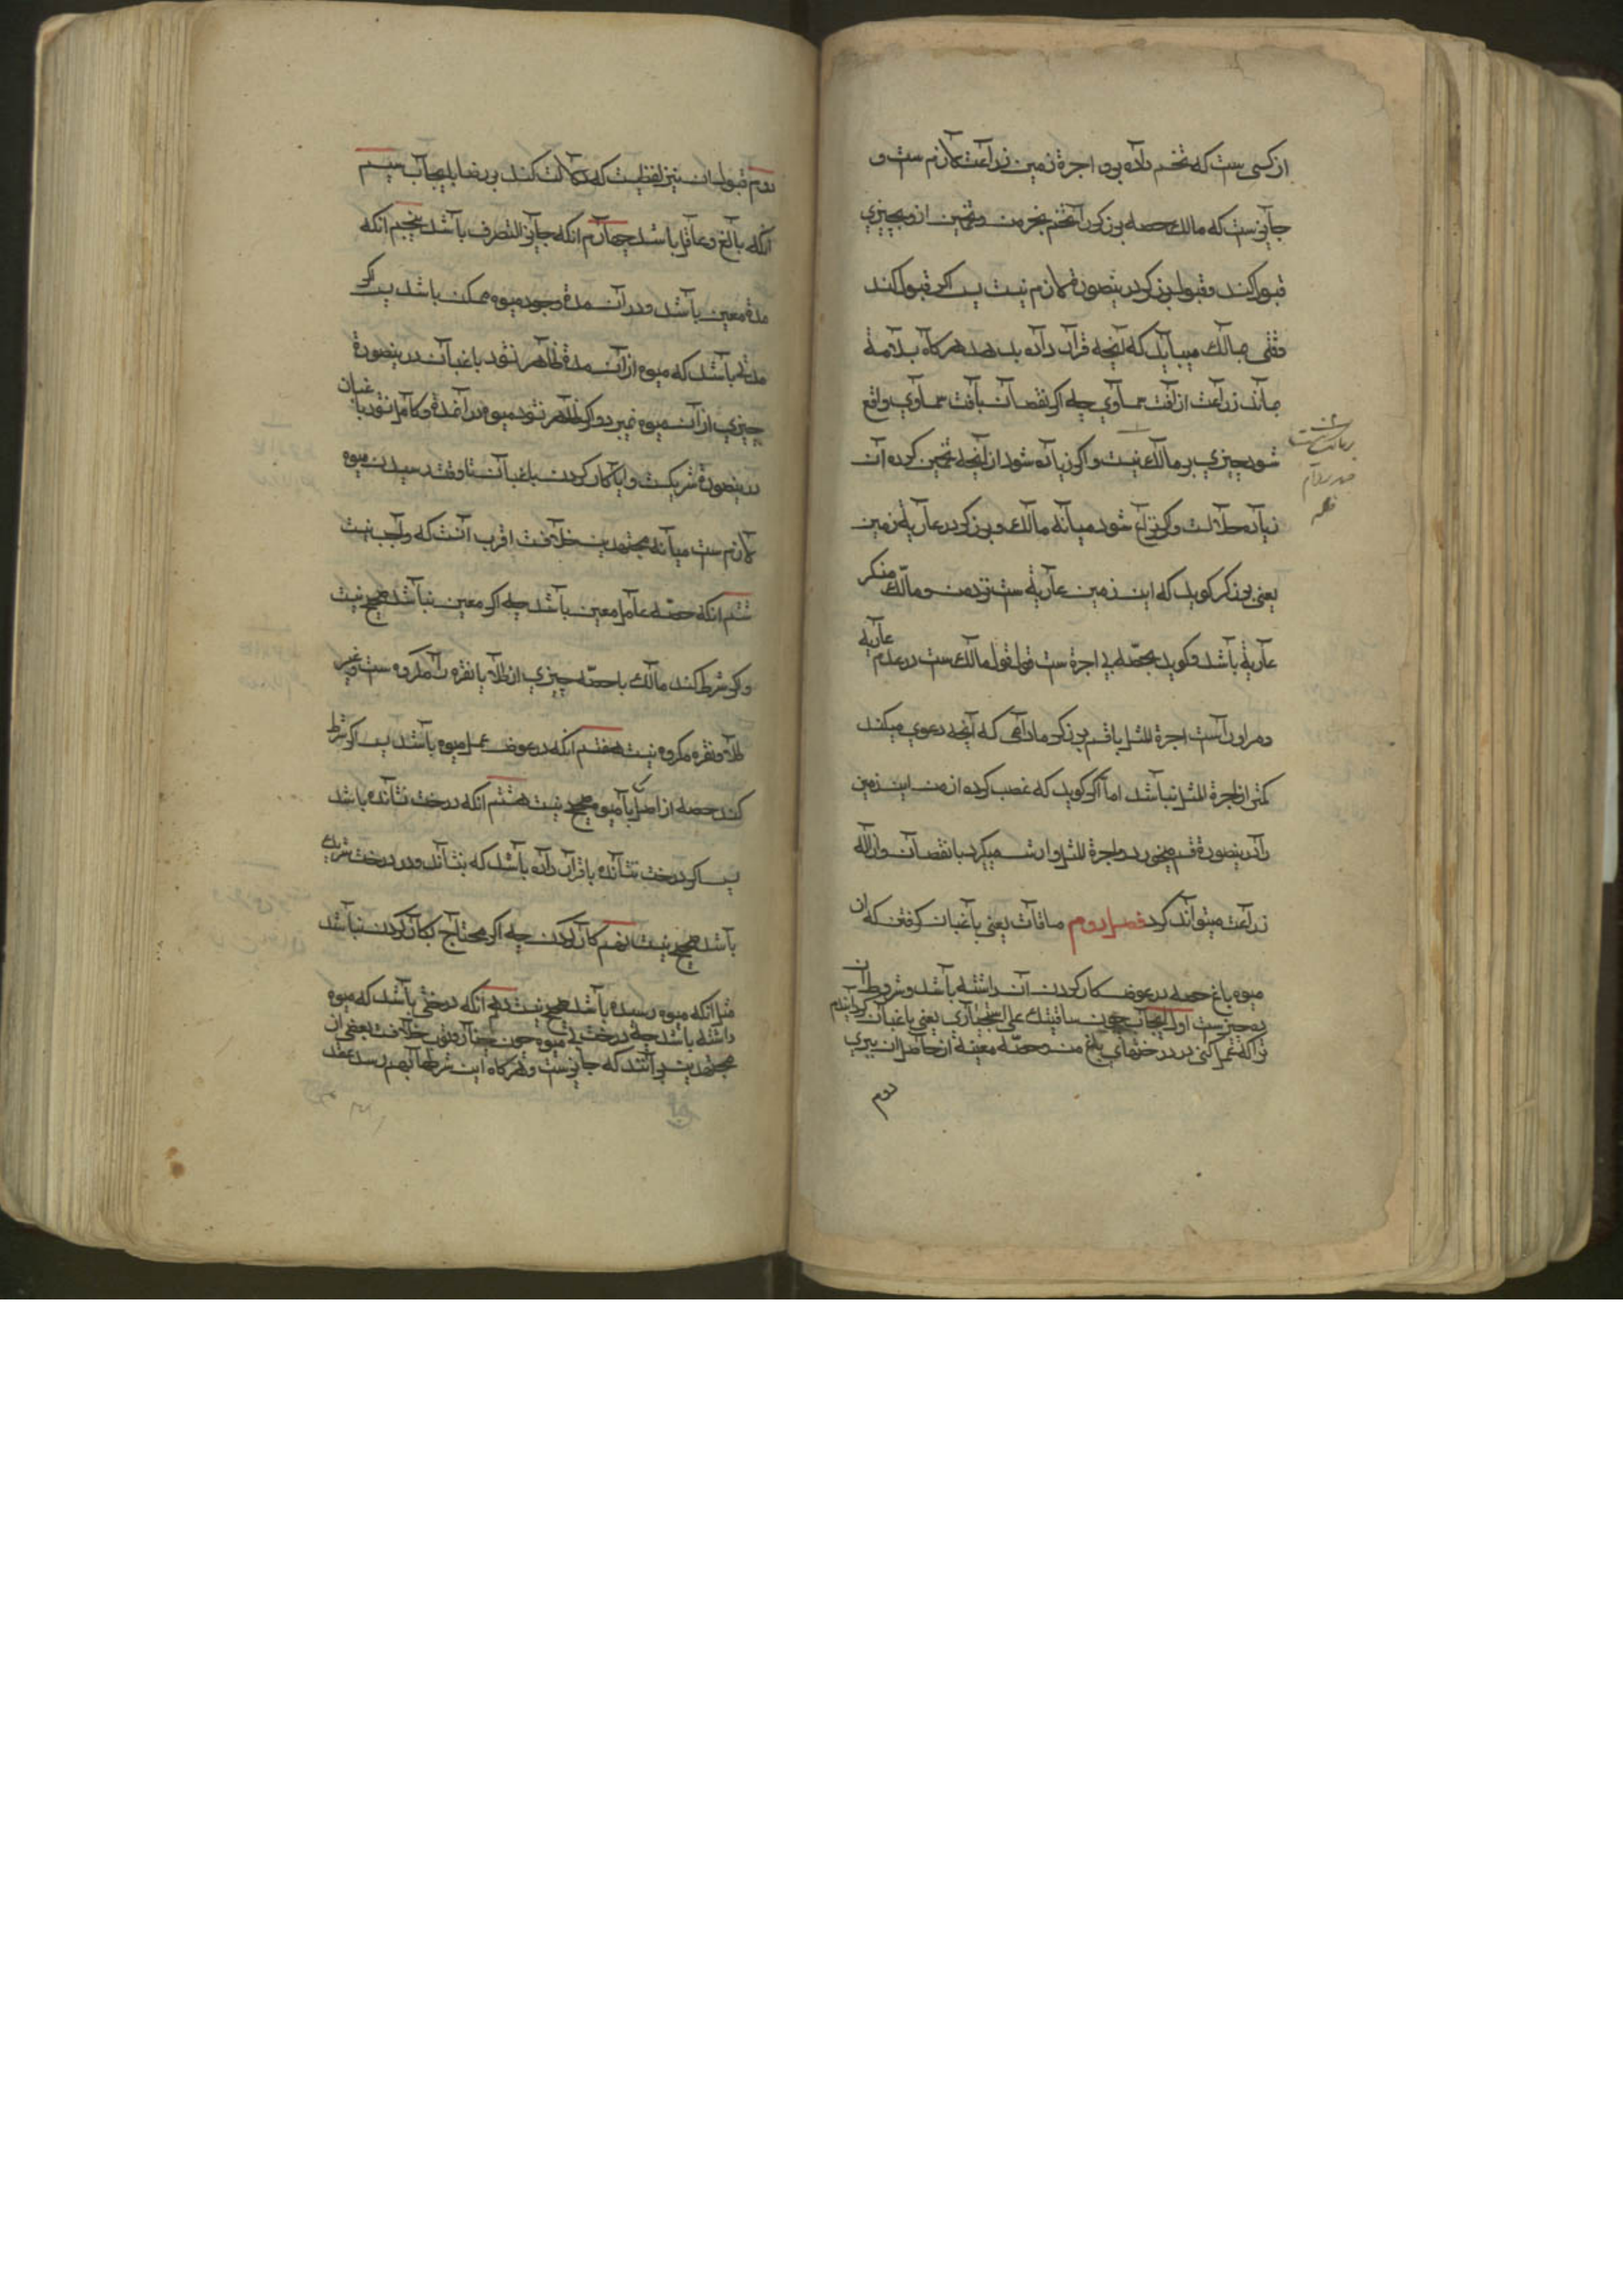 از کسی ست که تخم داده بود اجرة زمین زراعت لازم ست و
جایز ست که مالک حصه برزکر را تخم بخرمن و تخمین ازو بچیزی
قبول کند و قبول برزکر درینصورة لازم نیست پس اکر قبول کند
وقتی بمالک میباید که آنچه قرار داده بدهد هرکاه بسلامة
ماند زراعت از آفت سماوی چه اکر نقصان بآفت سماوی واقع
شود چیزی بر مالک نیست و اکر زیاده شود از آنچه تخمین کرده آن
زیاده حلالست و اکر نزاع شود میانه مالک و برزکر در عاریه زمین
یعنی برزکر کوید که این زمین عاریة ست نزد من و مالک منکر
عاریة باشد و کوید بحصّه یا اجرة ست قول قول مالک ست در عدم عاریه
و مر او راست اجرة المثل با قسم برزکر مادامی که آنچه دعوی میکند
کمتر از اجرة المثل نباشد اما اکر کوید که غصب کرده از من این زمین
را درینصورة قسم میخورد و اجرة المثل و ارش میکیرد با نقصان و ازاله
زراعت میتواند کرد فصل دوم مساقات یعنی باغبان کرفتن که از
میوه باغ حصه در عوض کار کردن آن داشته باشد و شروط آن
ده چیز ست اول ایجاب چون ساقیتک علی النخیازی یعنی باغبان کردانیدم
ترا که عمل کنی در درختهای باغ من و حصّه معینه از حاصل آن ببری
دوم
دوم قبول ان نیز لفظیست که دلالت کند بر رضا بایجاب سیم
آنکه بالغ و عاقل باشد چهارم انکه جایز التصرف باشد پنجم انکه
مدة معین باشد و در آن مدة وجود میوه ممکن باشد پس اکر
مدتی باشد که میوه از آن مدة ظاهر نشود باغبان درینصورة
چیزی از آن میوه نمیبرد و اکر ظاهر شود میوه در آن مدة و کامل نشود باغبان
درینصورة شریکست و ایا کار کردن باغبان تا وقت رسیدن میوه
لازم ست میانه مجتهدین خلافست اقرب آنست که واجب نیست
ششم انکه حصّه عامل معین باشد چه اکر معین نباشد صحیح نیست
و اکر شرط کند مالک با حصّه چیزی از طلا یا نقره را مکروه ست و غیر
طلا و نقره مکروه نیست هفتم انکه در عوض عمل میوه باشد پس اکر شرط
کند حصه از اصل یا میوه صحیح نیست هشتم انکه درخت نشانده باشد
پس اکر درخت نشانده یا قرار داده باشد که بنشاند و در درخت شریک
باشد صحیح نیست نهم کار کردن چه اکر محتاج بکار کردن نباشد
مثل انکه میوه رسیده باشد صحیح نیست دهم آنکه درختی باشد که میوه
داشته باشد چه درخت بی میوه چون چنار و توت خلافست بعضی از
مجتهدین برآنند که جایز ست و هرکاه این شرطها بهم رسد عقد